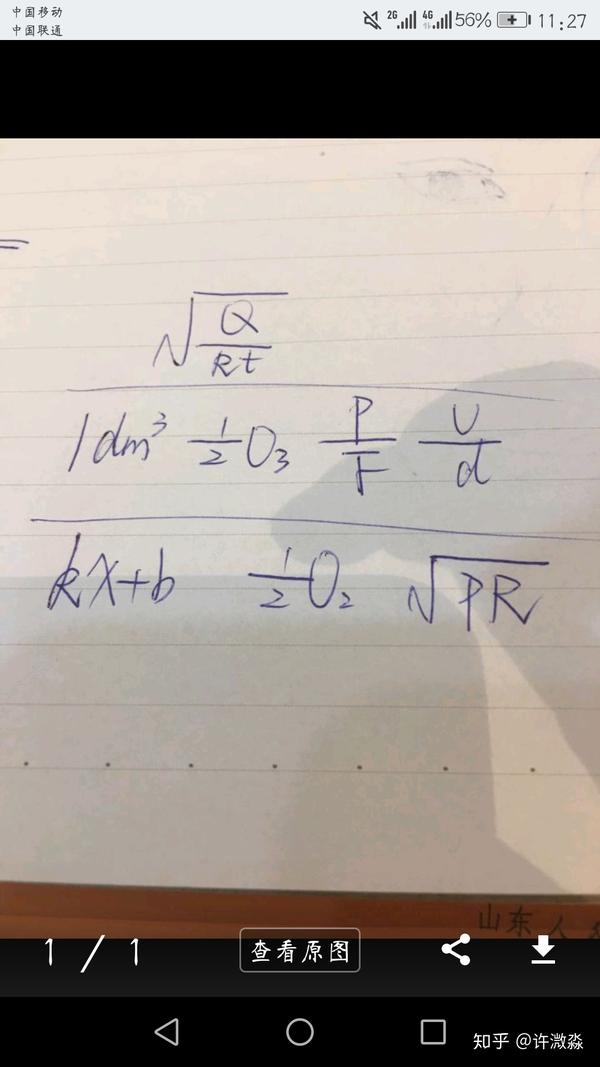 中国移动
中国联通
2G 4G 56% 11:27
√(Q/Rt)
1dm³ ½O₃ P/F U/d
kx+b ½O₂ √PR
山东人
1 / 1 查看原图
知乎 @许溦淼